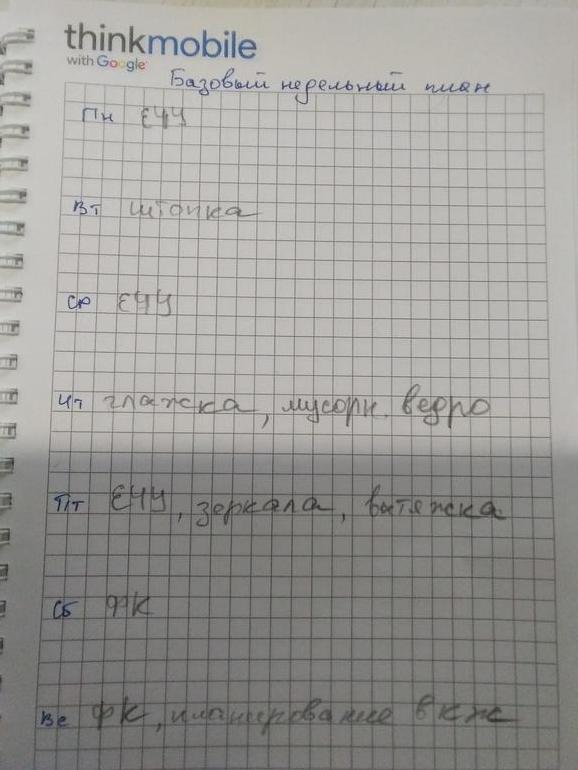 thinkmobile
with Google
Базовый недельный план
Пн ЕЧУ
Вт штопка
Ср ЕЧУ
Чт глажка, мусорн. ведро
Пт ЕЧУ, зеркала, вытяжка
Сб ФК
Вс ФК, планирование вкж